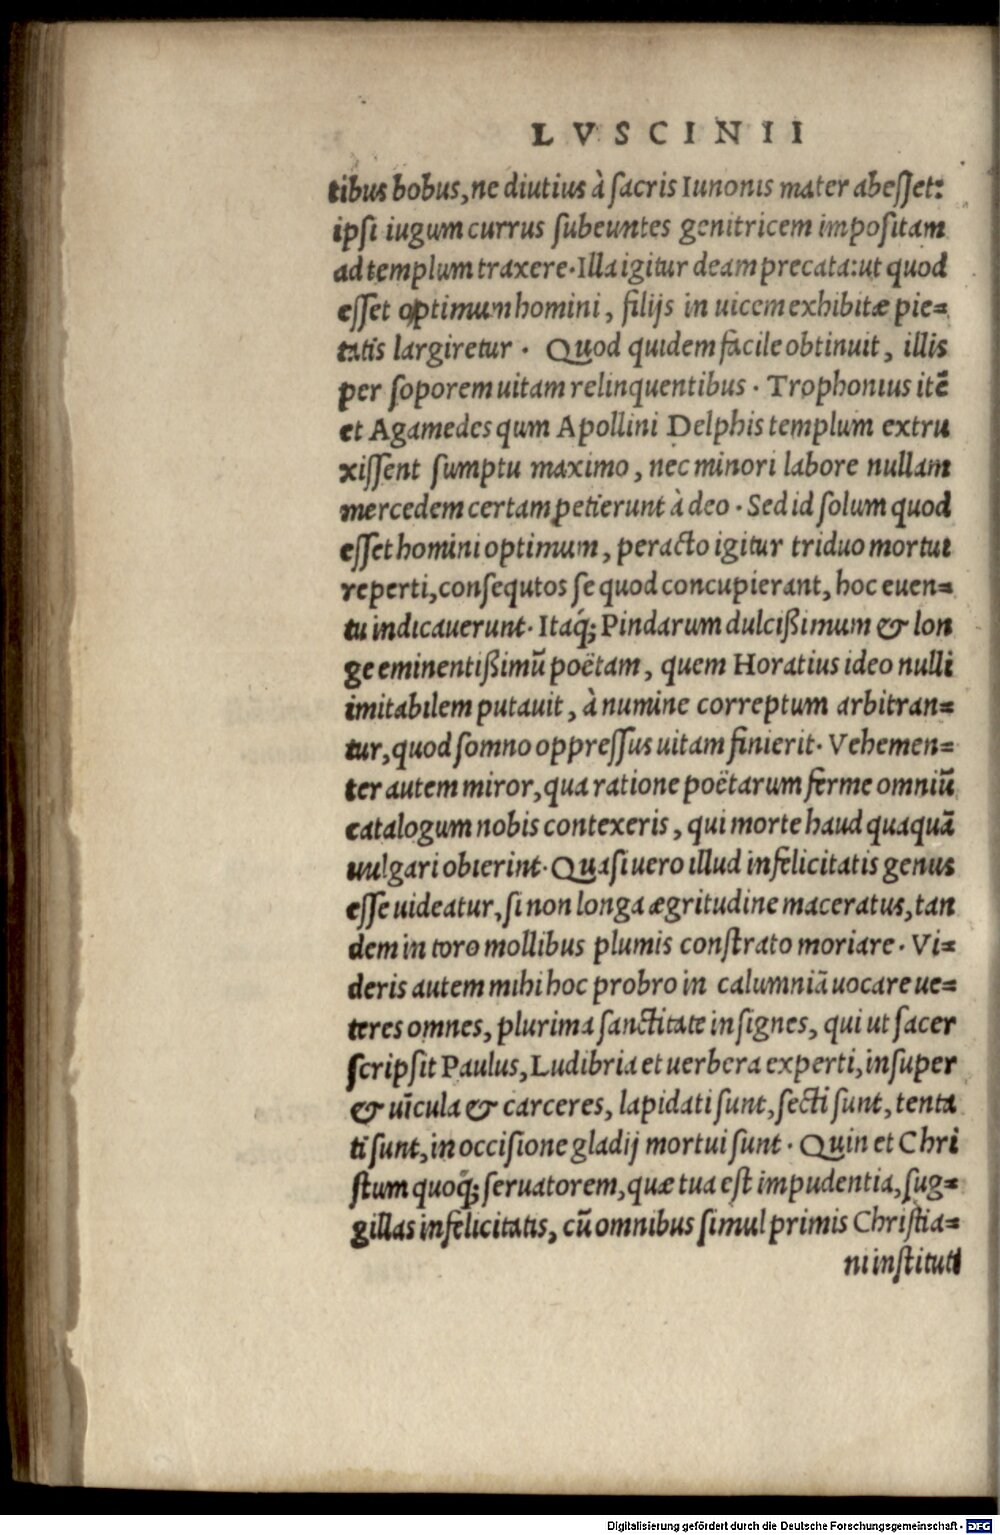 LVSCINII
tibus bobus, ne diutius à ſacris Iunonis mater abeſſet:
ipſi iugum currus ſubeuntes genitricem impoſitam
ad templum traxere. Illa igitur deam precata: ut quod
eſſet optimum homini, filijs in uicem exhibitæ pie=
tatis largiretur. Quod quidem facile obtinuit, illis
per ſoporem uitam relinquentibus. Trophonius itē
et Agamedes qum Apollini Delphis templum extru
xiſſent ſumptu maximo, nec minori labore nullam
mercedem certam petierunt à deo. Sed id ſolum quod
eſſet homini optimum, peracto igitur triduo mortui
reperti, conſequtos ſe quod concupierant, hoc euen=
tu indicauerunt. Itaq́; Pindarum dulcißimum & lon
ge eminentißimũ poëtam, quem Horatius ideo nulli
imitabilem putauit, à numine correptum arbitran=
tur, quod ſomno oppreſſus uitam finierit. Vehemen=
ter autem miror, qua ratione poëtarum ferme omniũ
catalogum nobis contexeris, qui morte haud quaquã
uulgari obierint. Quaſi uero illud infelicitatis genus
eſſe uideatur, ſi non longa ægritudine maceratus, tan
dem in toro mollibus plumis conſtrato moriare. Vi=
deris autem mihi hoc probro in calumniã uocare ue=
teres omnes, plurima ſanctitate inſignes, qui ut ſacer
ſcripſit Paulus, Ludibria et uerbera experti, inſuper
& uı̃cula & carceres, lapidati ſunt, ſecti ſunt, tenta
ti ſunt, in occiſione gladij mortui ſunt. Quin et Chri
ſtum quoq́; ſeruatorem, quæ tua eſt impudentia, ſug=
gillas infelicitatis, cũ omnibus ſimul primis Chriſtia=
ni inſtituti
Digitalisierung gefördert durch die Deutsche Forschungsgemeinschaft - DFG